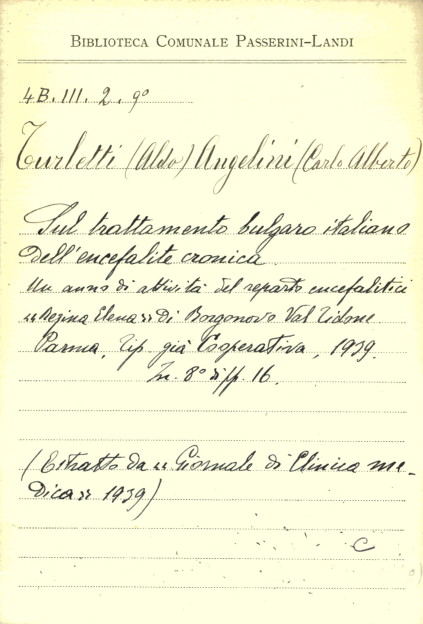 BIBLIOTECA COMUNALE PASSERINI-LANDI
4B.III.2.9°
Turletti (Aldo) Angelini (Carlo Alberto)
Sul trattamento bulgaro italiano
dell'encefalite cronica.
Un anno di attività del reparto encefalitici
«Regina Elena» di Borgonovo Val Tidone
Parma, Tip. già Cooperativa, 1939.
In. 8° di pp. 16.
(Estratto da «Giornale di Clinica me-
dica» 1939)
C